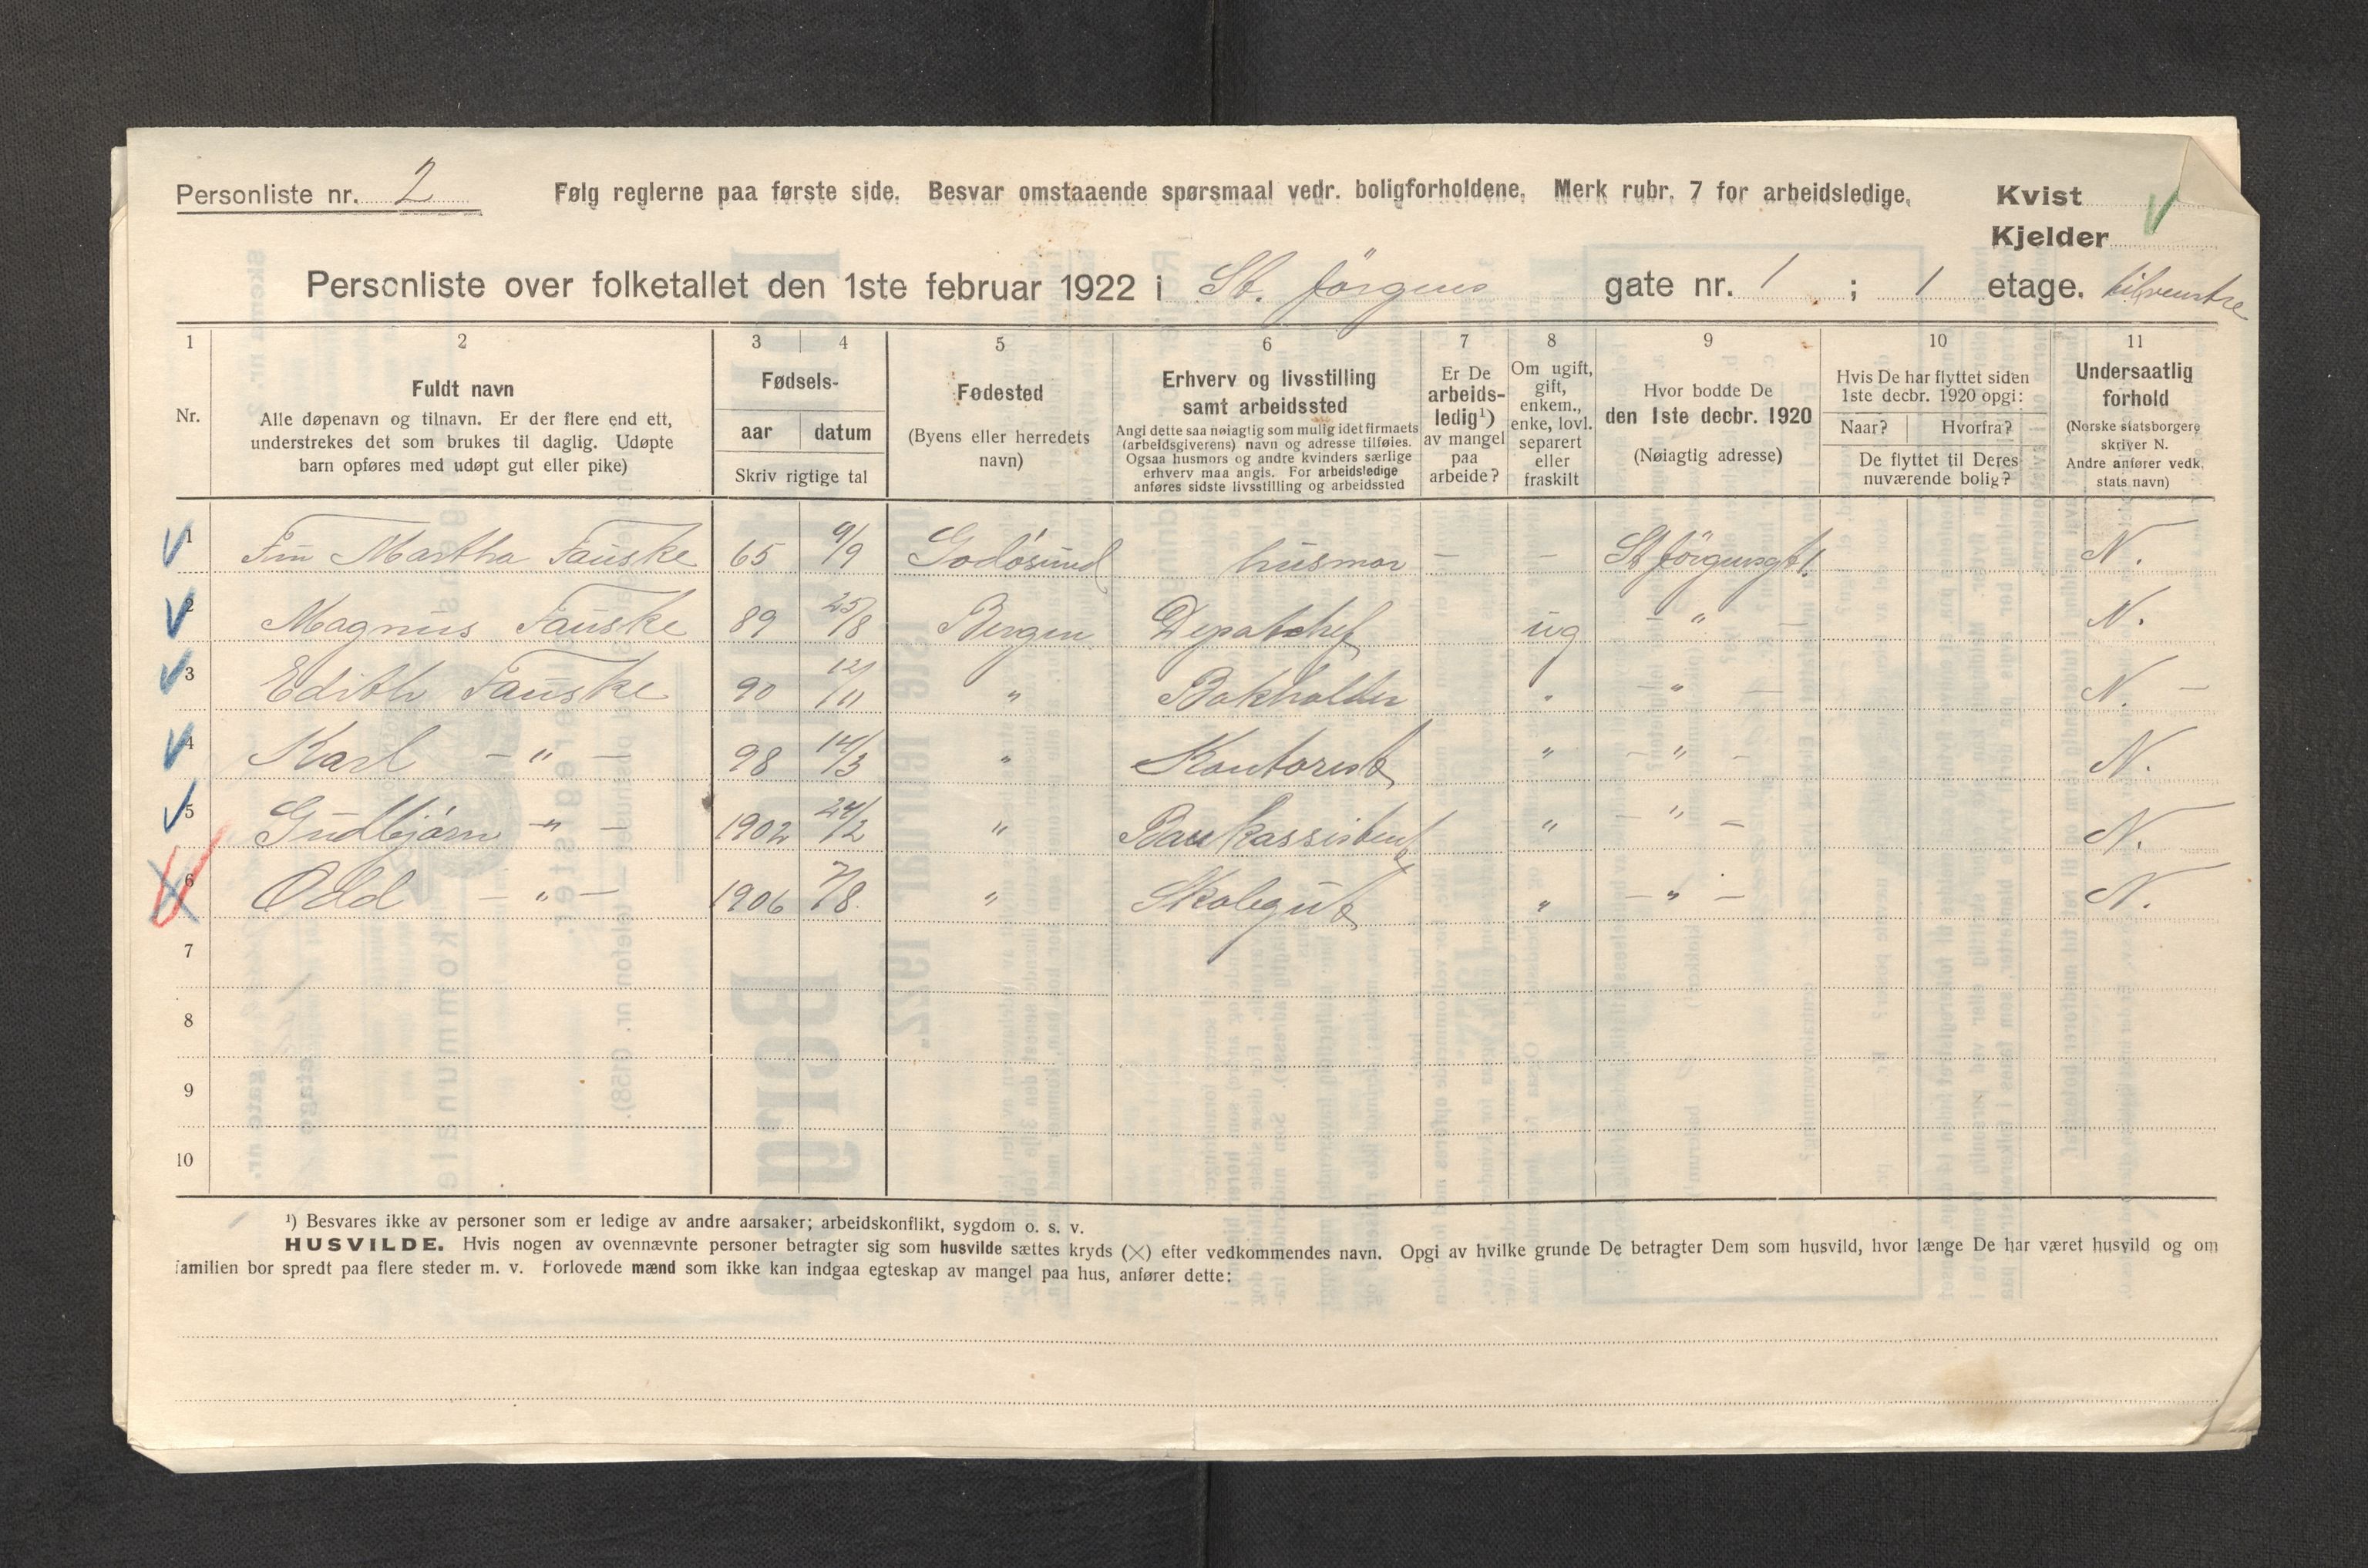 Personliste nr. 2 Følg reglerne paa første side. Besvar omstaaende spørsmaal vedr. boligforholdene. Merk rubr. 7 for arbeidsledige. Kvist
Kjelder
Personliste over folketallet den 1ste februar 1922 i St. Jørgens gate nr. 1 ; 1 etage. til venstre
1 2 3 4 5 6 7 8 9 10 11
Nr.
Fuldt navn
Alle døpenavn og tilnavn. Er der flere end ett,
understrekes det som brukes til daglig. Udøpte
barn opføres med udøpt gut eller pike)
Fødsels-
aar datum
Skriv rigtige tal
Fødested
(Byens eller herredets
navn)
Erhverv og livsstilling
samt arbeidssted
Angi dette saa nøiagtig som mulig idet firmaets
(arbeidsgiverens) navn og adresse tilføies.
Ogsaa husmors og andre kvinders særlige
erhverv maa angis. For arbeidsledige
anføres sidste livsstilling og arbeidssted
Er De
arbeids-
ledig¹)
av mangel
paa
arbeide?
Om ugift,
gift,
enkem.,
enke, lovl.
separert
eller
fraskilt
Hvor bodde De
den 1ste decbr. 1920
(Nøiagtig adresse)
Hvis De har flyttet siden
1ste decbr. 1920 opgi:
Naar? Hvorfra?
De flyttet til Deres
nuværende bolig?
Undersaatlig
forhold
(Norske statsborgere
skriver N.
Andre anfører vedk.
stats navn)
1 Martha Fauske 65 9/9 Godøsund husmor — — St Jørgensgt 1. N.
2 Magnus Fauske 89 25/8 Bergen Depatchef ug — " — N.
3 Edith Fauske 90 12/11 " Bokholder " — " — N. —
4 Karl — " — 98 14/3 " Kontorist " — " — N.
5 Gudbjørn — " — 1902 24/2 " Bankassistent " — " — N.
6 Odd — " — 1906 7/8. " Skolegut " — " — N.
7
8
9
10
¹) Besvares ikke av personer som er ledige av andre aarsaker; arbeidskonflikt, sygdom o. s. v.
HUSVILDE. Hvis nogen av ovennævnte personer betragter sig som husvilde sættes kryds (×) efter vedkommendes navn. Opgi av hvilke grunde De betragter Dem som husvild, hvor længe De har været husvild og om
familien bor spredt paa flere steder m. v. Forlovede mænd som ikke kan indgaa egteskap av mangel paa hus, anfører dette: